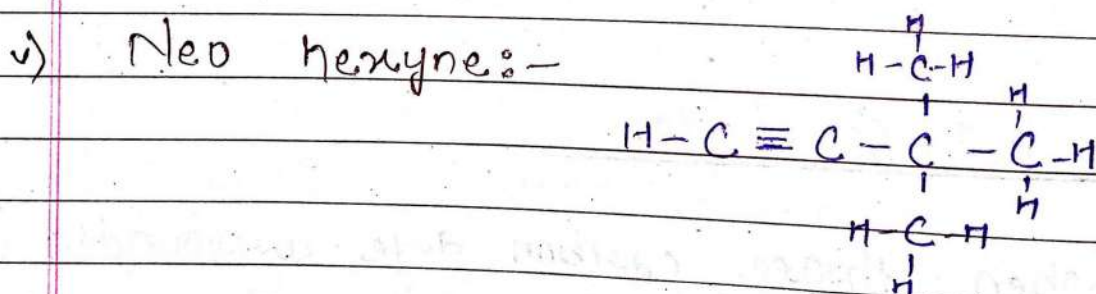 v) Neo hexyne:-
H
H-C-H
H
H-C≡C-C-C-H
H
H-C-H
H